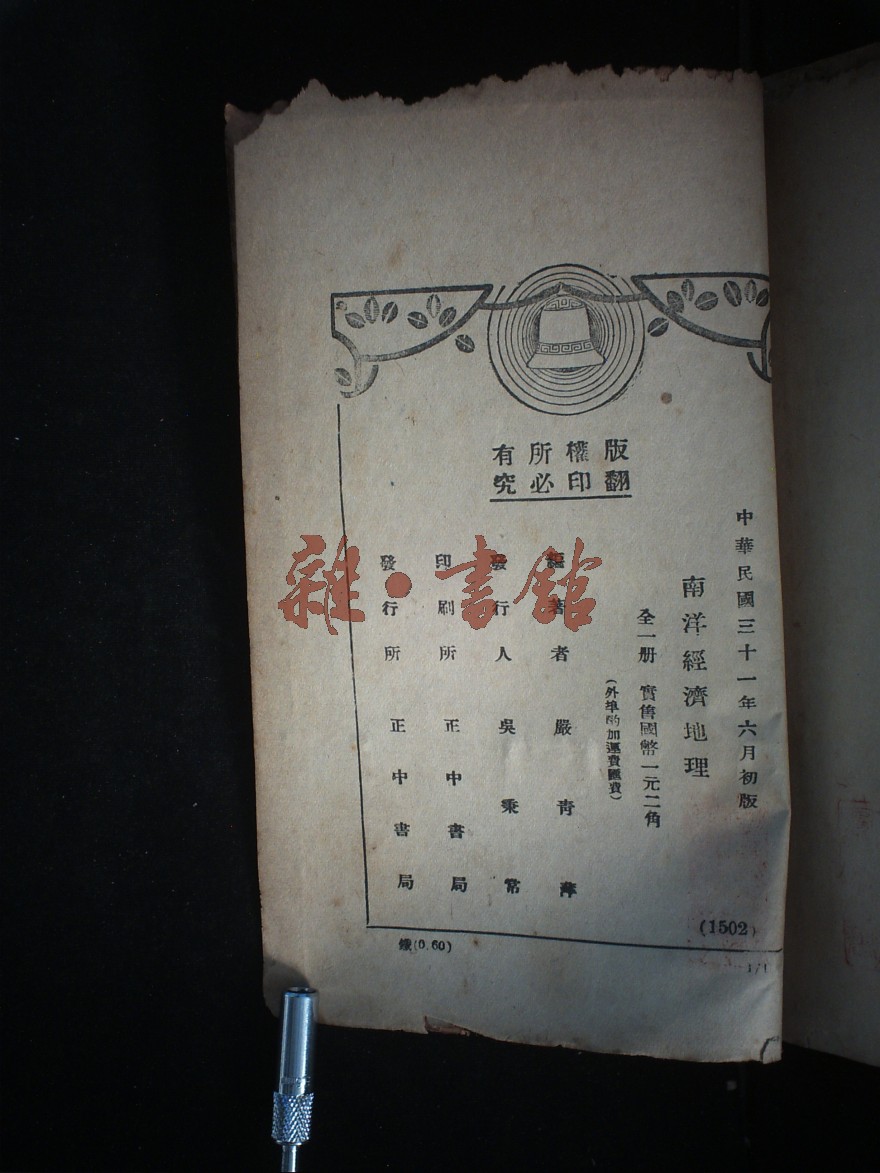 版權所有
翻印必究
中華民國三十一年六月初版
南洋經濟地理
全一册 實售國幣一元二角
(外埠酌加運費匯費)
編著者 嚴青萍
發行人 吳秉常
印刷所 正中書局
發行所 正中書局
(1502)
(0.60)
1/1
雜·書館